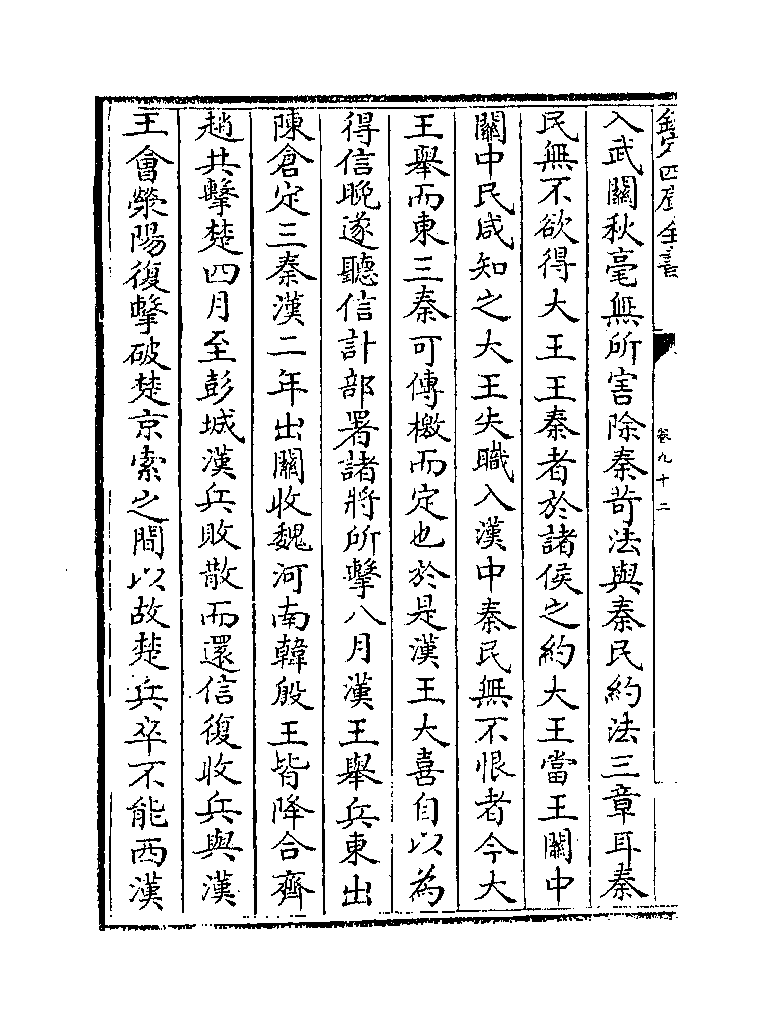 欽定四庫全書
卷九十二
入武關秋毫無所害除秦苛法與秦民約法三章耳秦
民無不欲得大王王秦者於諸侯之約大王當王關中
關中民咸知之大王失職入漢中秦民無不恨者今大
王舉而東三秦可傳檄而定也於是漢王大喜自以為
得信晚遂聽信計部署諸將所擊八月漢王舉兵東出
陳倉定三秦漢二年出關收魏河南韓殷王皆降合齊
趙共擊楚四月至彭城漢兵敗散而還信復收兵與漢
王會滎陽復擊破楚京索之間以故楚兵卒不能西漢